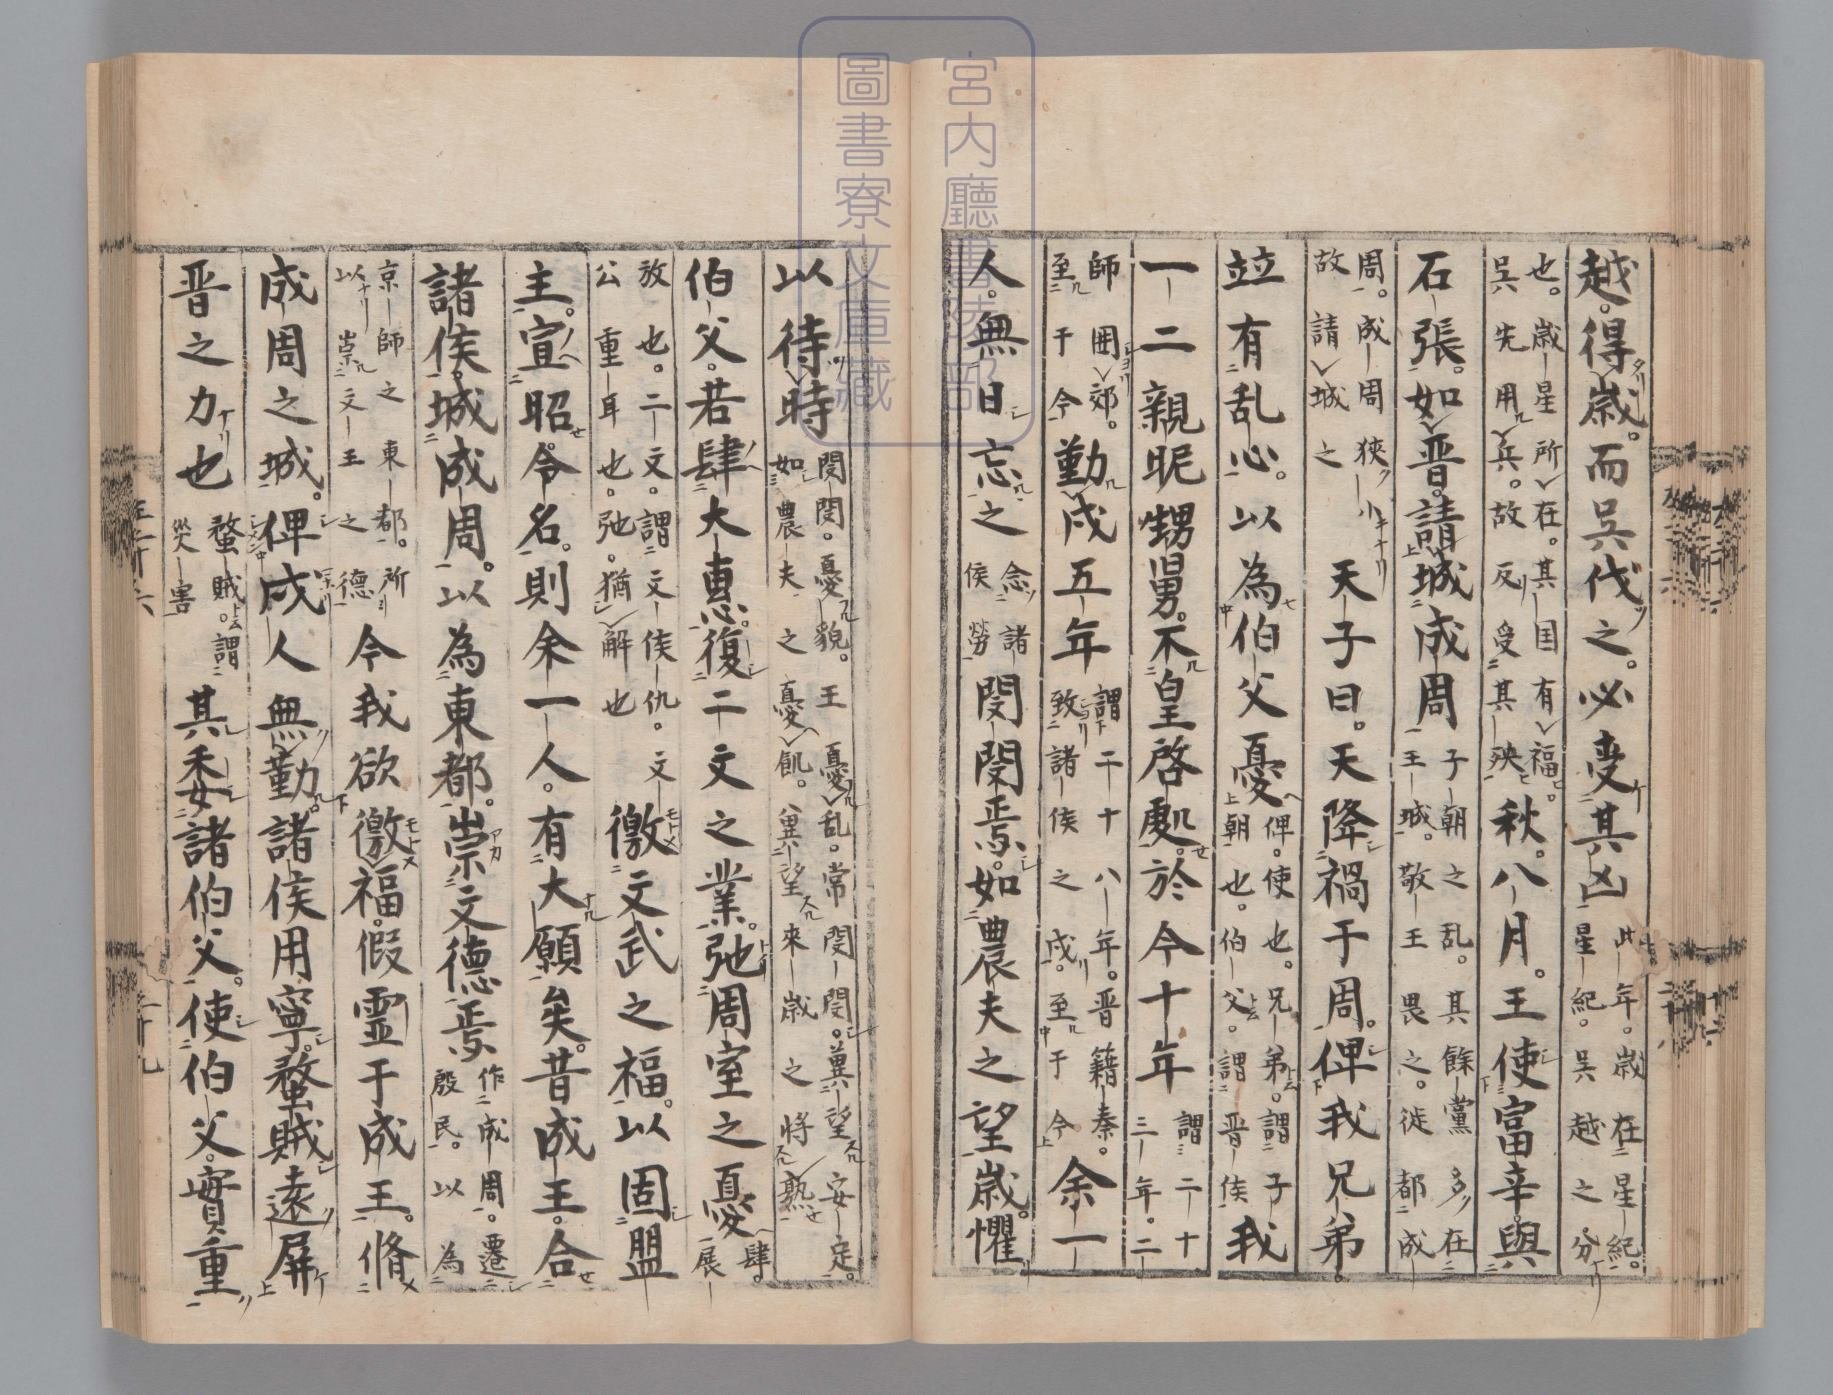 越。得歳。而呉伐之。必受其凶此年。歳在星紀。
星紀。呉越之分
也。歳星所在。其国有福。
呉先用兵。故反受其殃秋。八月。王使富辛與
石張。如晋。請城成周子朝之乱。其餘黨多在
王城。敬王畏之。徙都成
周。成周狹小
故請城之天子曰。天降禍于周。俾我兄弟。
竝有乱心。以為伯父憂俾。使也。兄弟。謂子
朝也。伯父。謂晋侯我
一二親昵甥舅。不皇啓處。於今十年謂二十
三年。二
師囲郊。
至于今勤戍五年謂二十八年。晋籍秦。
致諸侯之戍。至于今余一
人。無日忘之念諸
侯勞閔閔焉。如農夫之望歳。懼
以待時閔閔。憂貌。王憂乱。常閔閔。冀望安定。
如農夫之憂飢。冀望來歳之将熟
伯父。若肆大惠。復二文之業。弛周室之憂肆。
展
放也。二文。謂文侯仇。文
公重耳也。弛。猶解也徼文武之福。以固盟
主。宣昭令名。則余一人。有大願矣。昔成王。合
諸侯。城成周。以為東都。崇文德焉作成周。遷
殷民。以為
京師之東都。所
以崇文王之德今我欲徼福。假霊于成王。脩
成周之城。俾戍人無勤。諸侯用寧。蝥賊遠屏
晋之力也蝥賊。謂
災害其委諸伯父。使伯父。實重
宮内廳書陵部
圖書寮文庫藏